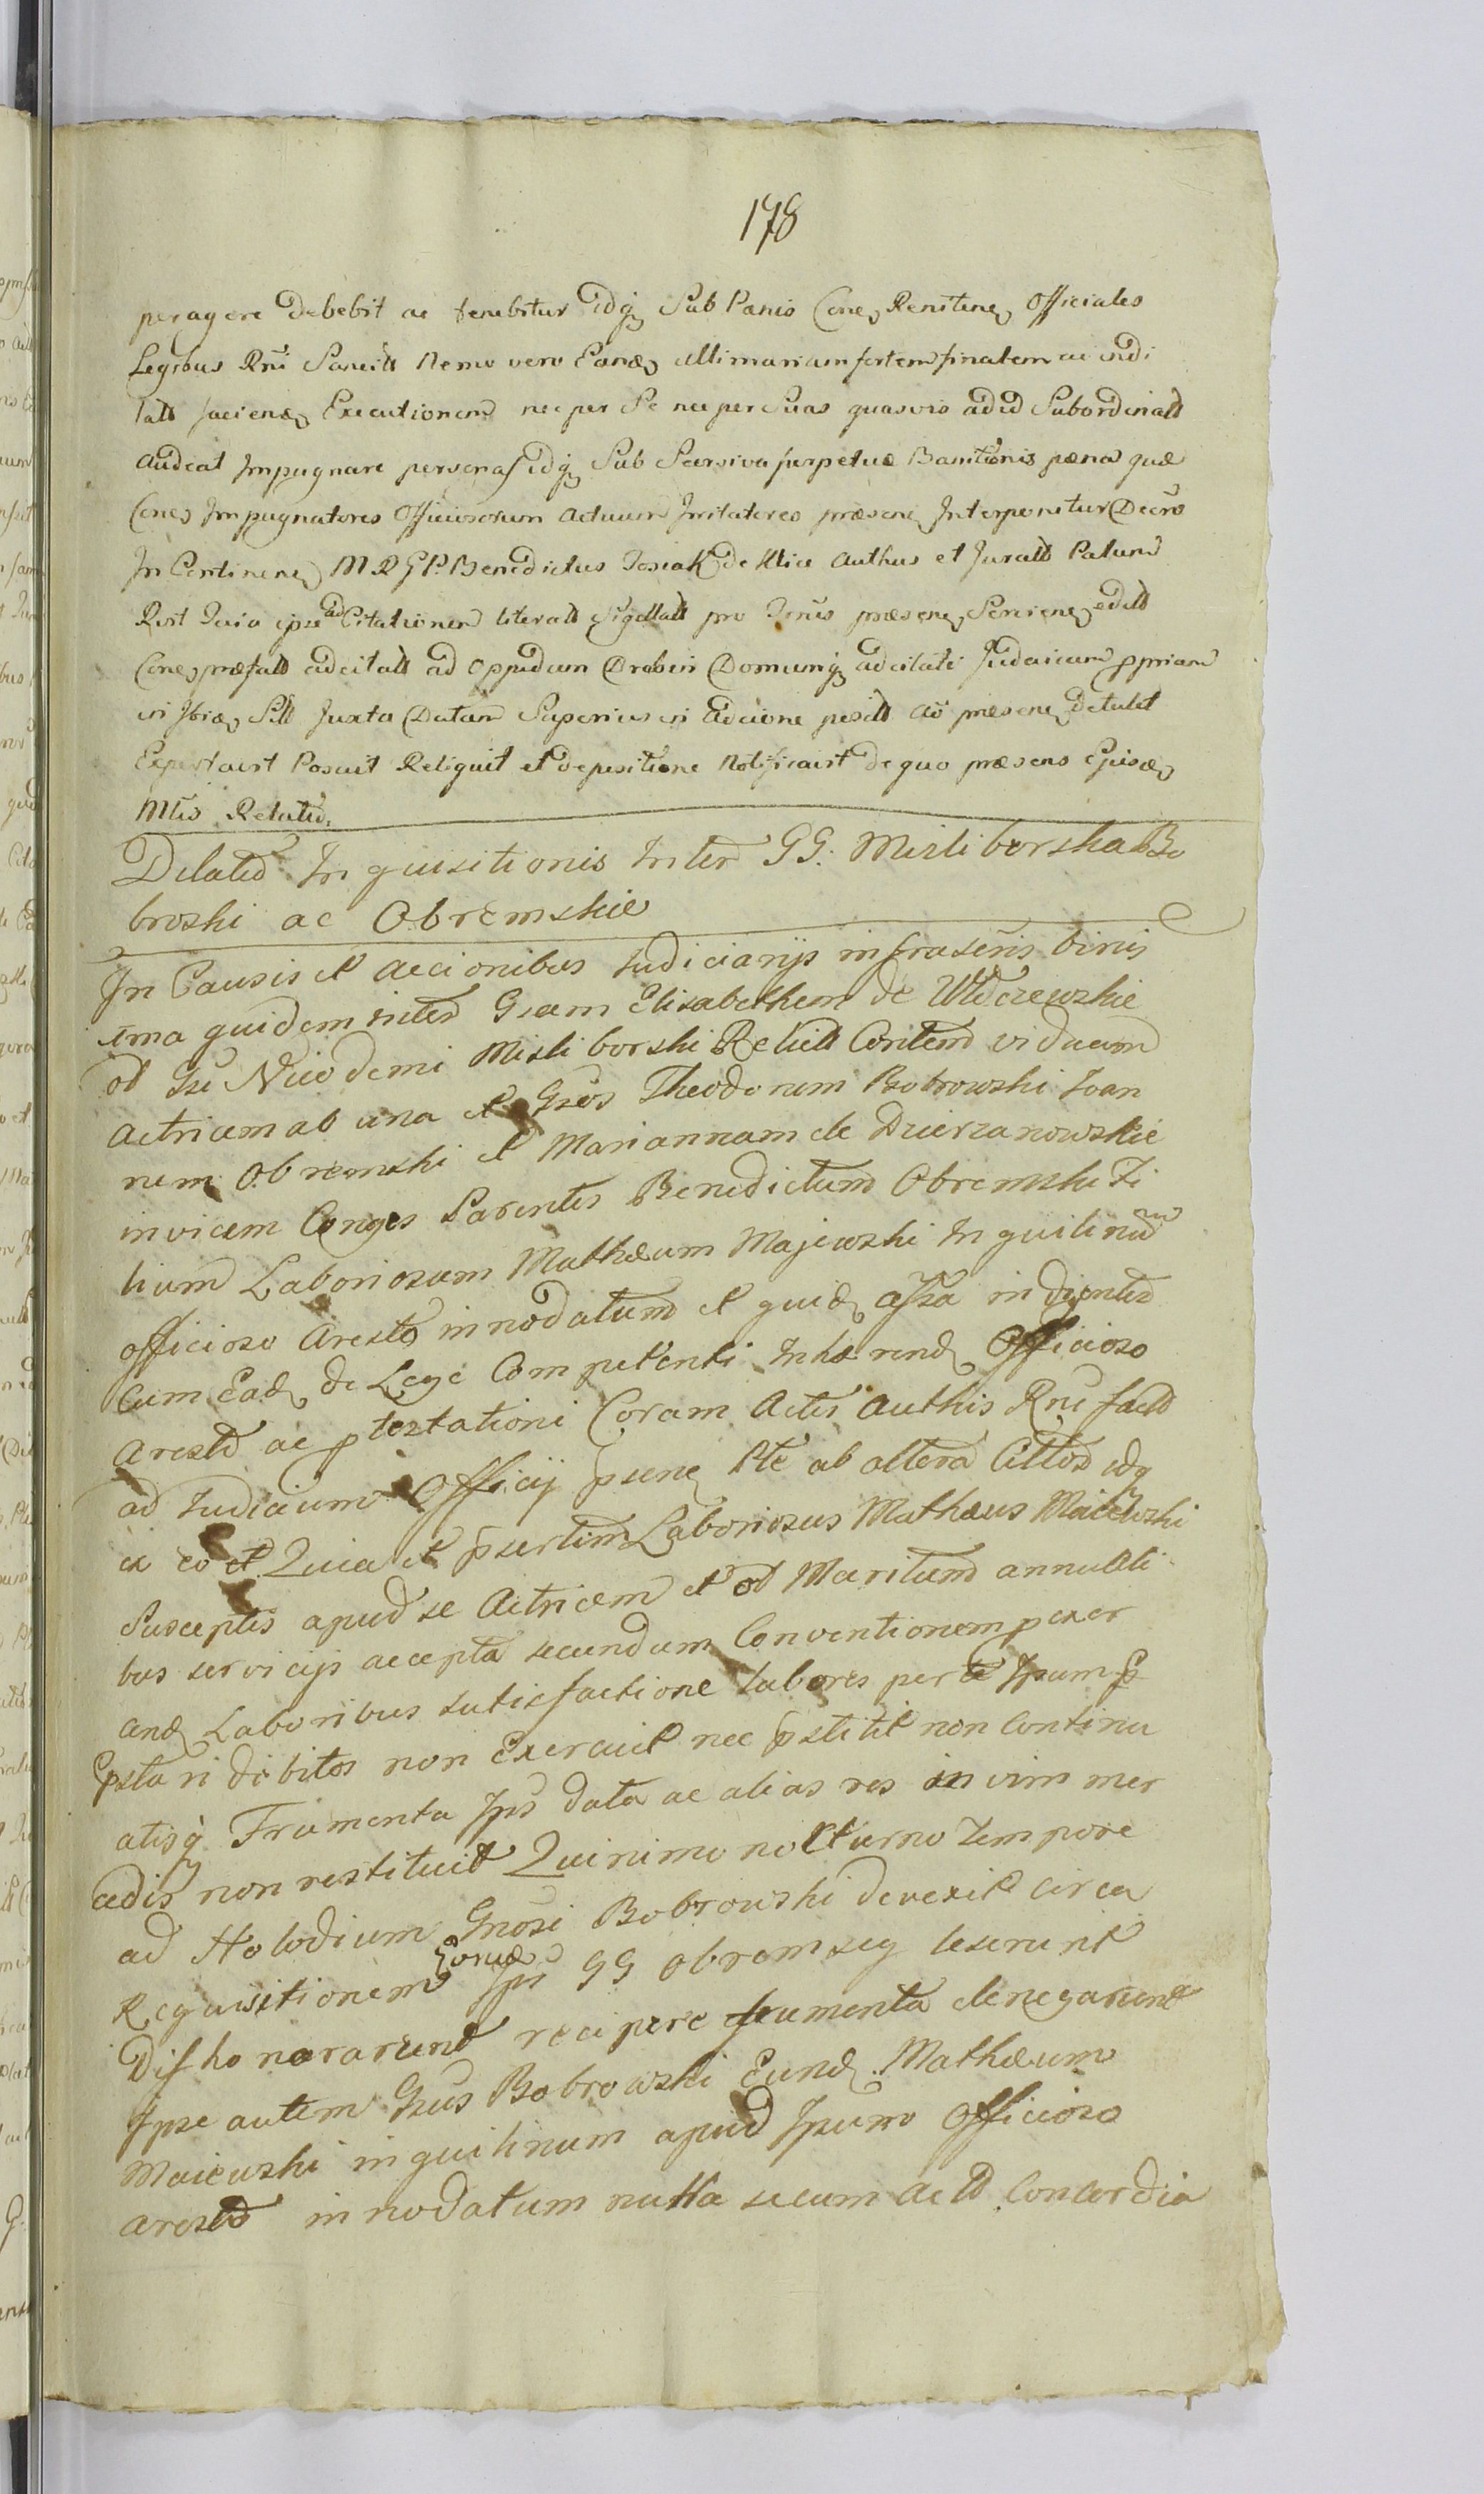 178
peragere debebit ac tenebitur idq sub Panis Cone Renitene Officiales
Legibus Rni Sancitt Nemo vero Eande ultimariam fortem finalem ac indi
tatt faciend Executionem nec per se nec per suas quasvis ad id Subordinatt
audeat Impugnare personas idq Sub Scersiva perpetuæ Banitionis pæna quæ
Cones Impugnatores Officiosorum actuum Irritatores præsene Interponitur Decro
In Continene M R G P. Benedictus Josiak de Ulica Authus et Juratt Palam
Rvit Quia ipse ad Citationem literatt Sigillatt pro Tenus præsene Seriene editt
Cone præfatt adcitatt ad oppidum Drobin Domumq adcitati Judaicam ppriam
in Ibide Sitt Juxta Datam Superius in adcione positt ad præsene detulit
Exportavit Posuit Reliquit et de positione Notificavit de quo præsens Ejusde
Mtis Relatio.
Dilatio Inquisitionis Inter GG: Misliborska Bo
broski ac Obremskie
In Causis et accionibus Judiciarijs infrascris binis
ima quidem inter Gsam Elisabethem de Wilczewskie
ol Gsi Nicodemi Misliborski Relictt Contem viduam
actricem ab una et Gsos Theodorum Bobrowski Joan
nem Obremski et Mariannam de Dzierzanowskie
invicem Conges Parentes Benedictum Obremski Fi
lium Laboriosum Mathæum Majewski Inquilinum
officioso aresto innodatum et quide assa indigente
cum Eade de Lege Competenti Inhærend Officioso
Aresto ac ptestationi Coram Actis Authis Rni factt
ad Judicium Officij psene Pte ab altera Cittos idq
ex eo et Quia et psertim Laboriosus Mathæus Maiewski
Susceptis apud se Actricem et ol Maritum annuali
bus servicijs accepta secundum Conventionem p exer
cend Laboribus satisfactione labores per se Ipsum
pstari debitos non Exercuit nec pstitit non continu
atisq Frumenta Ipsi data ac alias res in vim mer
cedis non restituit Quinimo nocturno tempore
ad Holodium Gnosi Bobrowski devexit circa
Requisitionem Eorunde Ipsi GG Obremscy leserunt
Dishonorarunt recipere frumenta denegarunt
Ipse autem Gsus Bobrowski Eund Mathæum
Maiewski inquilinum apud Ipsum Officioso
aresto innodatum nulla secum actt Concordia